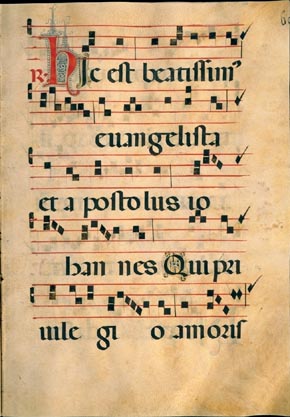 R. Hic est beatissim⁹
euangelista
et a postolus io
han nes Qui pri
uile gi o amoris